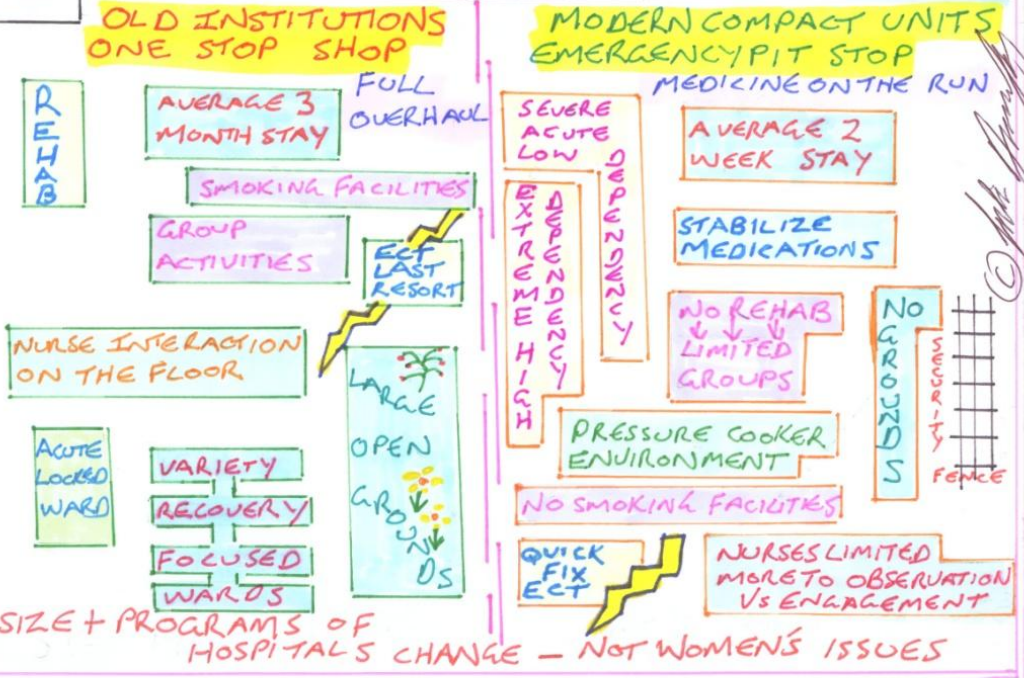 OLD INSTITUTIONS
ONE STOP SHOP
FULL
OVERHAUL
REHAB
AVERAGE 3
MONTH STAY
SMOKING FACILITIES
GROUP
ACTIVITIES
ECT
LAST
RESORT
NURSE INTERACTION
ON THE FLOOR
LARGE
OPEN
GROUNDS
ACUTE
LOCKED
WARD
VARIETY
RECOVERY
FOCUSED
WARDS
MODERN COMPACT UNITS
EMERGENCY PIT STOP
MEDICINE ON THE RUN
SEVERE
ACUTE
LOW
DEPENDENCY
EXTREME HIGH
DEPENDENCY
AVERAGE 2
WEEK STAY
STABILIZE
MEDICATIONS
NO REHAB
LIMITED
GROUPS
NO
GROUNDS
SECURITY
FENCE
PRESSURE COOKER
ENVIRONMENT
NO SMOKING FACILITIES
QUICK
FIX
ECT
NURSES LIMITED
MORE TO OBSERVATION
VS ENGAGEMENT
©
SIZE + PROGRAMS OF
HOSPITALS CHANGE - NOT WOMEN'S ISSUES